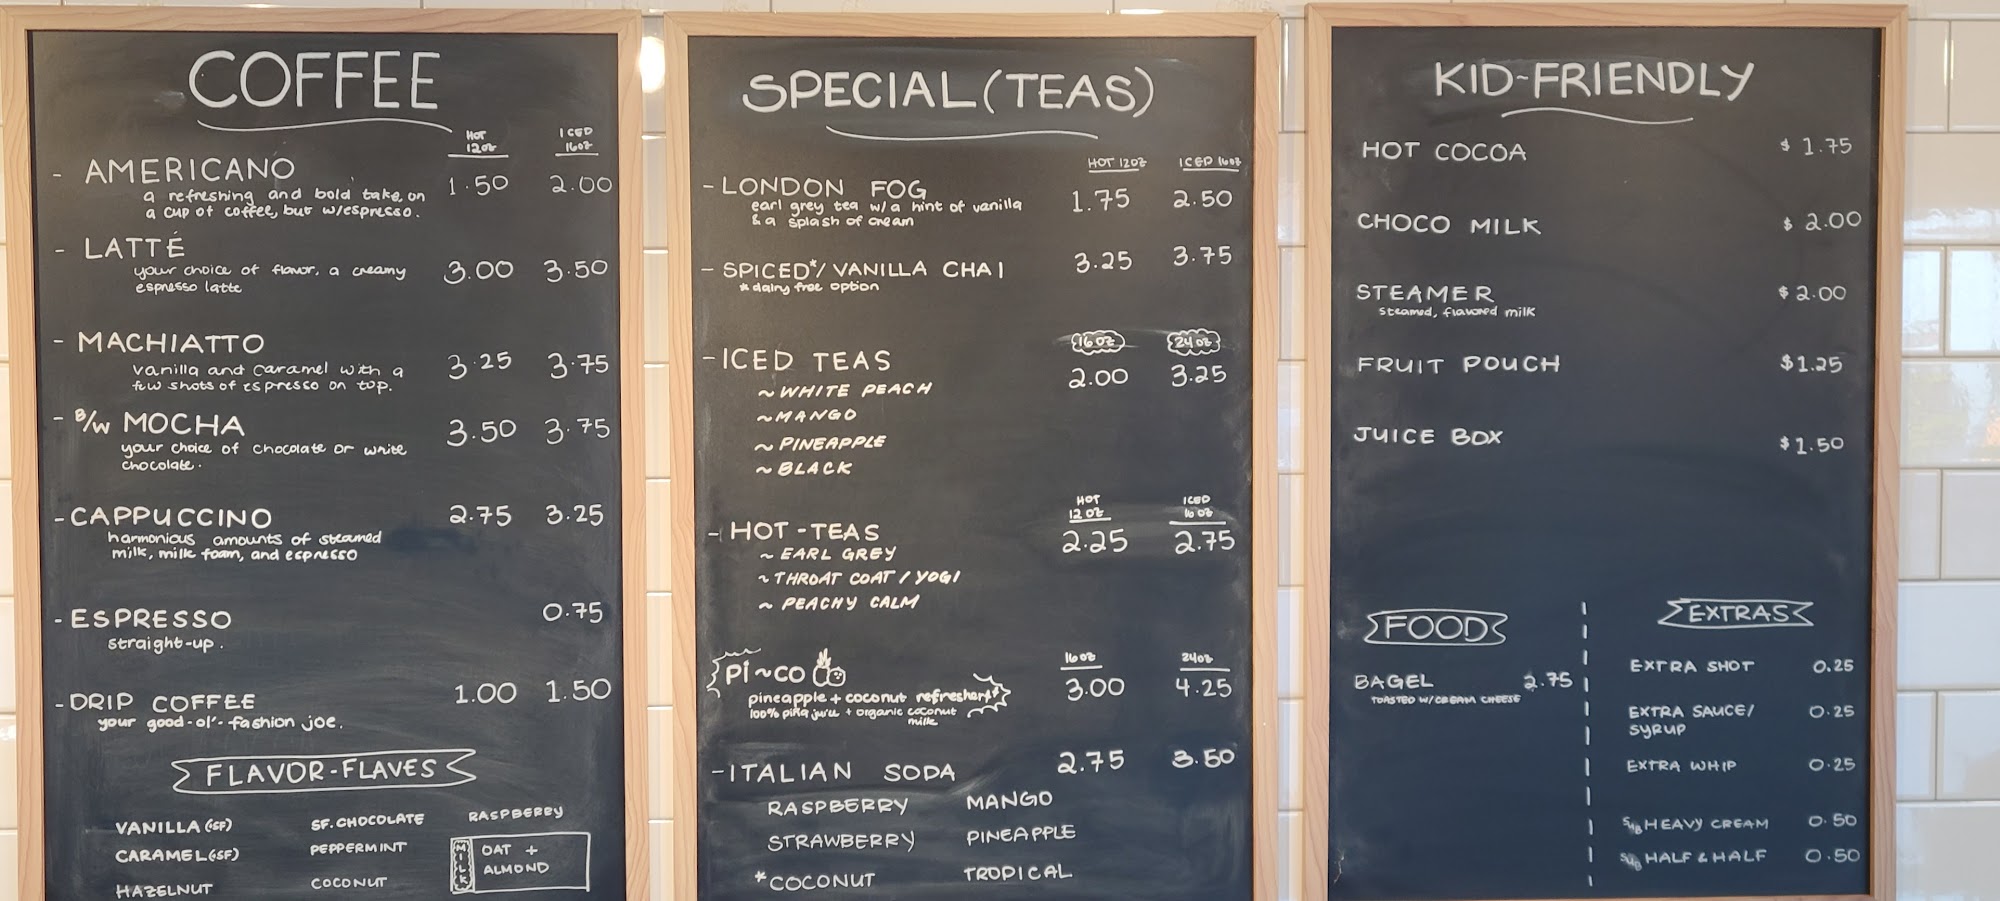 COFFEE
HOT
12oz
ICED
16oz
- AMERICANO 1.50 2.00
a refreshing and bold take, on
a cup of coffee, but w/espresso.
- LATTÉ 3.00 3.50
your choice of flavor, a creamy
espresso latte
- MACHIATTO 3.25 3.75
vanilla and caramel with a
few shots of espresso on top.
- B/W MOCHA 3.50 3.75
your choice of chocolate or white
chocolate.
- CAPPUCCINO 2.75 3.25
harmonious amounts of steamed
milk, milk foam, and espresso
- ESPRESSO 0.75
straight-up.
- DRIP COFFEE 1.00 1.50
your good-ol'-fashion joe.
FLAVOR-FLAVES
VANILLA (SF) SF. CHOCOLATE RASPBERRY
CARAMEL (SF) PEPPERMINT
HAZELNUT COCONUT
MILK
OAT +
ALMOND
SPECIAL (TEAS)
HOT 12oz ICED 16oz
- LONDON FOG 1.75 2.50
earl grey tea w/a hint of vanilla
& a splash of cream
- SPICED*/VANILLA CHAI 3.25 3.75
* dairy free option
16oz 24oz
- ICED TEAS 2.00 3.25
~ WHITE PEACH
~ MANGO
~ PINEAPPLE
~ BLACK
HOT
12oz
ICED
16oz
- HOT-TEAS 2.25 2.75
~ EARL GREY
~ THROAT COAT / YOGI
~ PEACHY CALM
16oz 24oz
Pi~CO 3.00 4.25
pineapple + coconut refresher!
100% piña juice + organic coconut
milk
- ITALIAN SODA 2.75 3.50
RASPBERRY MANGO
STRAWBERRY PINEAPPLE
*COCONUT TROPICAL
KID-FRIENDLY
HOT COCOA $ 1.75
CHOCO MILK $ 2.00
STEAMER $ 2.00
steamed, flavored milk
FRUIT POUCH $1.25
JUICE BOX $1.50
FOOD
BAGEL 2.75
TOASTED W/CREAM CHEESE
EXTRAS
EXTRA SHOT 0.25
EXTRA SAUCE/ 0.25
SYRUP
EXTRA WHIP 0.25
SUB HEAVY CREAM 0.50
SUB HALF & HALF 0.50